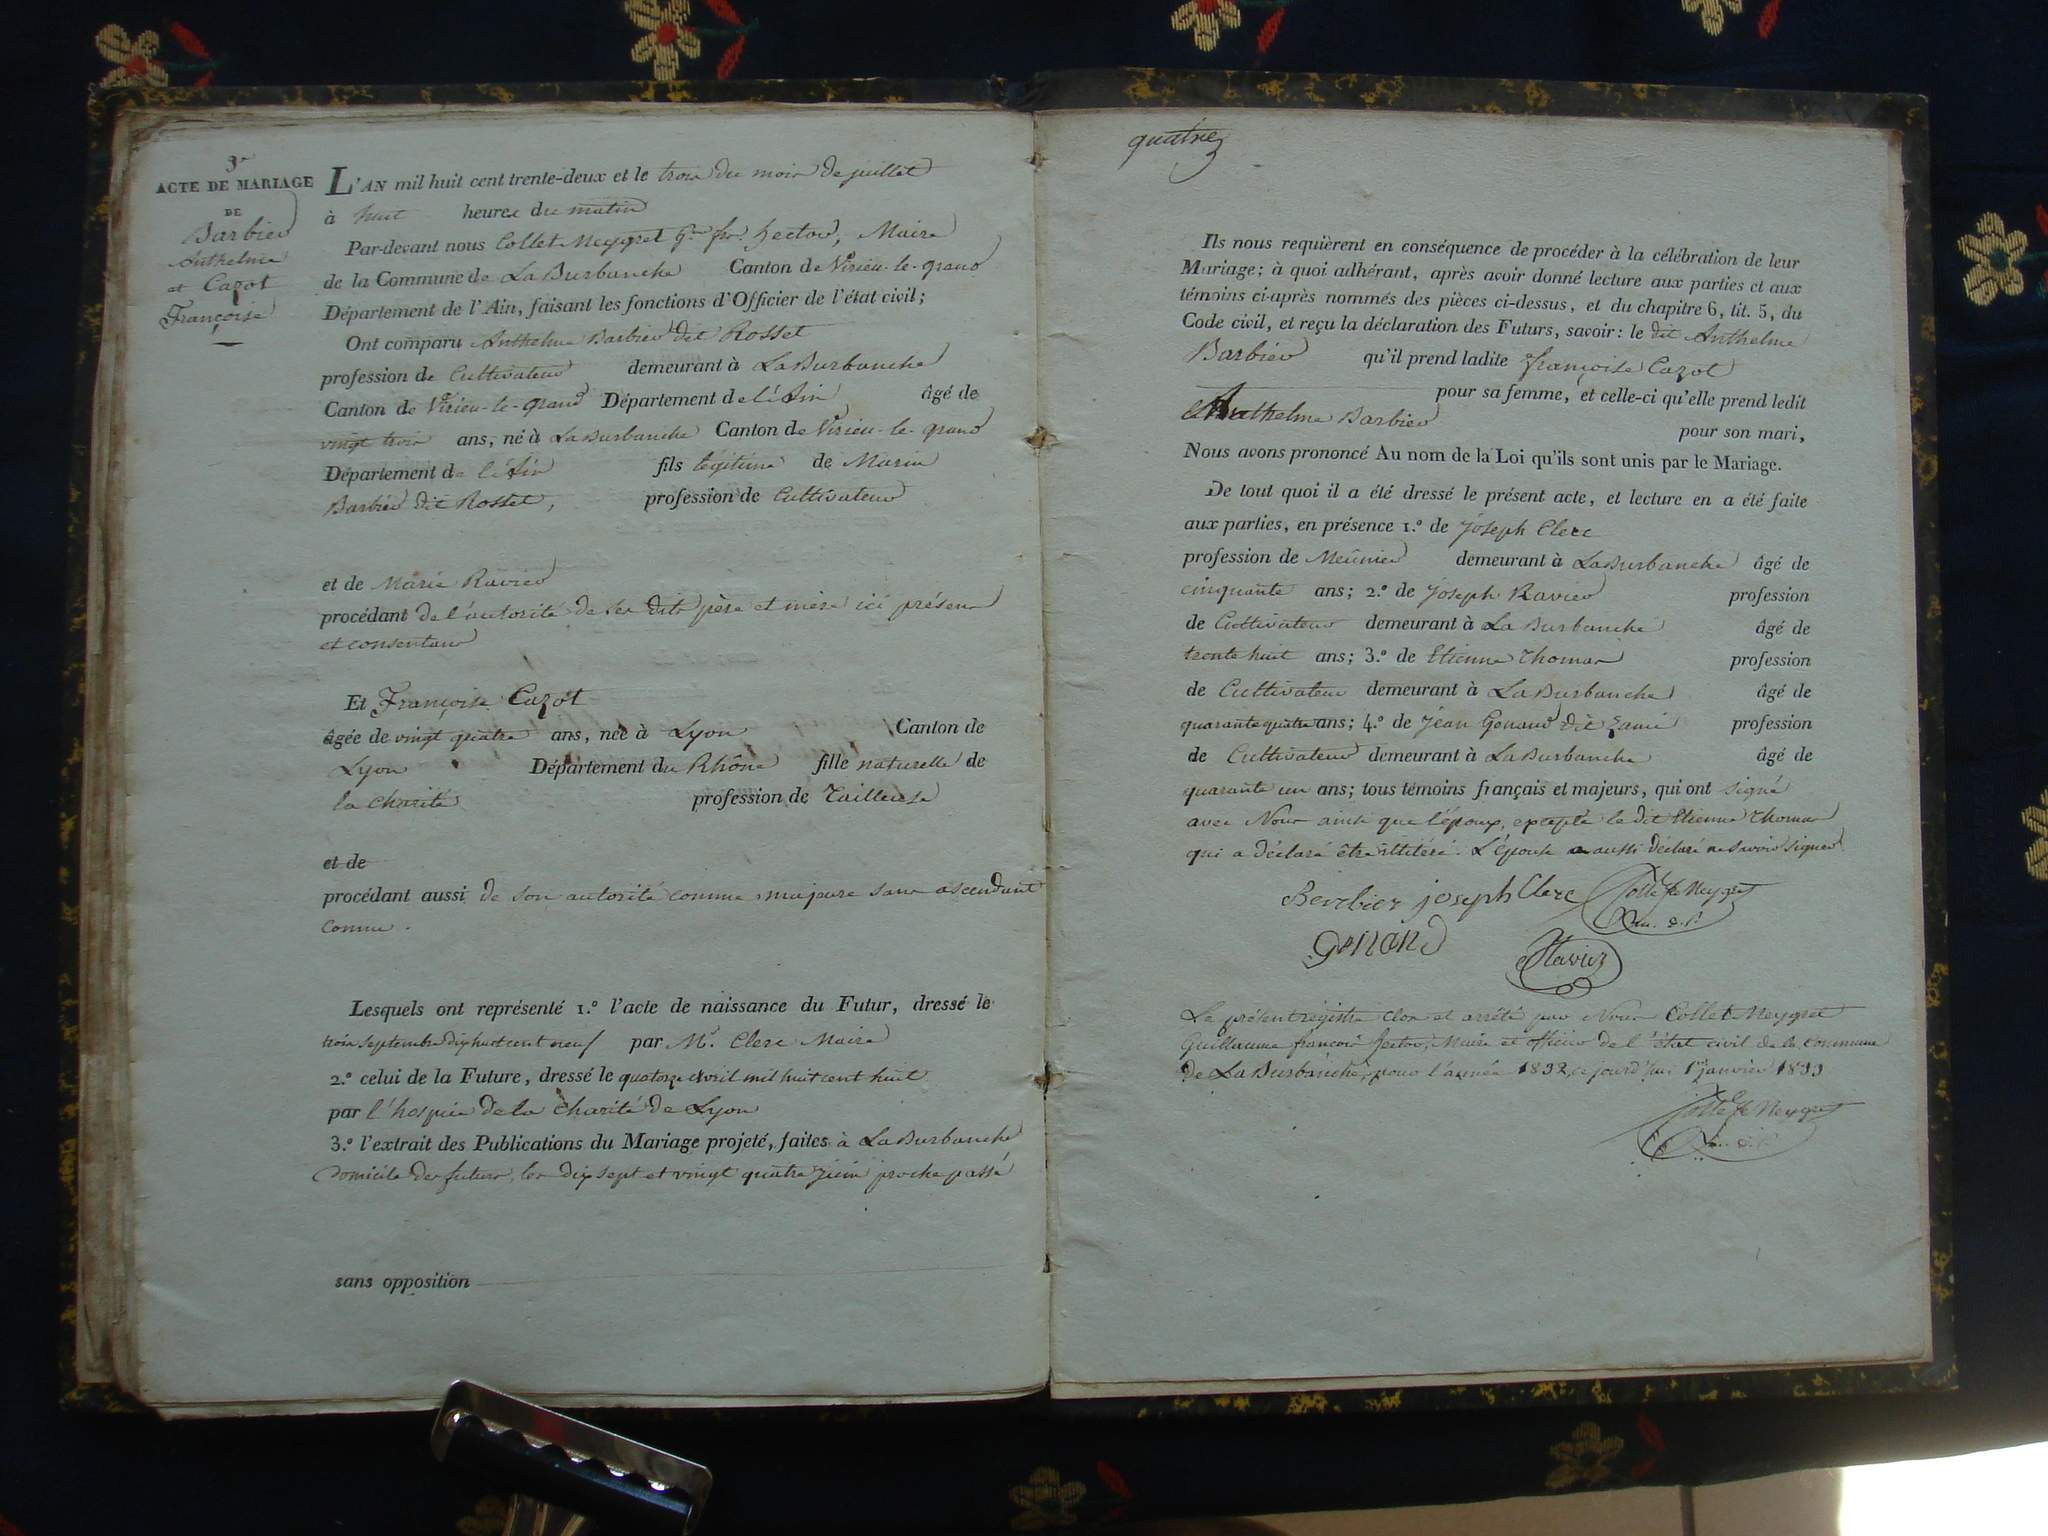 3e
ACTE DE MARIAGE
DE
Barbier
Anthelme
et Cazot
Françoise
L'AN mil huit cent trente-deux et le trois du mois de juillet
à huit heures du matin
Par-devant nous Collet Meygret Gme fois hector, Maire
de la Commune de La Burbanche Canton de Virieu-le-grand
Département de l'Ain, faisant les fonctions d'Officier de l'état civil;
Ont comparu Anthelme Barbier dit Rosset
profession de Cultivateur demeurant à La Burbanche
Canton de Virieu-le-grand Département de l'Ain âgé de
vingt trois ans, né à La Burbanche Canton de Virieu-le-grand
Département de l'Ain fils légitime de Marin
Barbier dit Rosset, profession de Cultivateur
et de Marie Ravier
procédant de l'autorité de ses dits père et mère ici présens
et consentans
Et Françoise Cazot
âgée de vingt quatre ans, née à Lyon Canton de
Lyon Département du Rhône fille naturelle de
la Charité profession de Tailleuse
et de
procédant aussi de son autorité comme majeure sans ascendant
connu.
Lesquels ont représenté 1.º l'acte de naissance du Futur, dressé le
trois septembre dix huit cent neuf par Mr. Clerc Maire
2.º celui de la Future, dressé le quatorze avril mil huit cent huit
par l'hospice de la Charité de Lyon
3.º l'extrait des Publications du Mariage projeté, faites à La Burbanche
Domicile des futurs, les dix sept et vingt quatre juin proche passé
sans opposition
quatre
Ils nous requièrent en conséquence de procéder à la célébration de leur
Mariage; à quoi adhérant, après avoir donné lecture aux parties et aux
témoins ci-après nommés des pièces ci-dessus, et du chapitre 6, tit. 5, du
Code civil, et reçu la déclaration des Futurs, savoir: le dit Anthelme
Barbier qu'il prend ladite françoise Cazot
pour sa femme, et celle-ci qu'elle prend ledit
Anthelme Barbier pour son mari,
Nous avons prononcé Au nom de la Loi qu'ils sont unis par le Mariage.
De tout quoi il a été dressé le présent acte, et lecture en a été faite
aux parties, en présence 1.º de Joseph Clerc
profession de Meûnier demeurant à La Burbanche âgé de
cinquante ans; 2.º de Joseph Ravier profession
de Cultivateur demeurant à La Burbanche âgé de
trente huit ans; 3.º de Etienne Thomas profession
de Cultivateur demeurant à La Burbanche âgé de
quarante quatre ans; 4.º de Jean Genand dit profession
de Cultivateur demeurant à La Burbanche âgé de
quarante un ans; tous témoins français et majeurs, qui ont signé
avec Nous ainsi que l'époux, excepté le dit Etienne Thomas
qui a déclaré être illitéré. L'épouse a aussi déclaré ne savoir signer
Berbier joseph Clerc Collet Meygret
Genand Ravier
Le présent régistre clos et arrêté par Nous Collet Meygret
Guillaume françois hector, Maire et officier de l'état civil de la commune
de La Burbanche, pour l'année 1832, ce jourd'hui 1er janvier 1833
Collet Meygret